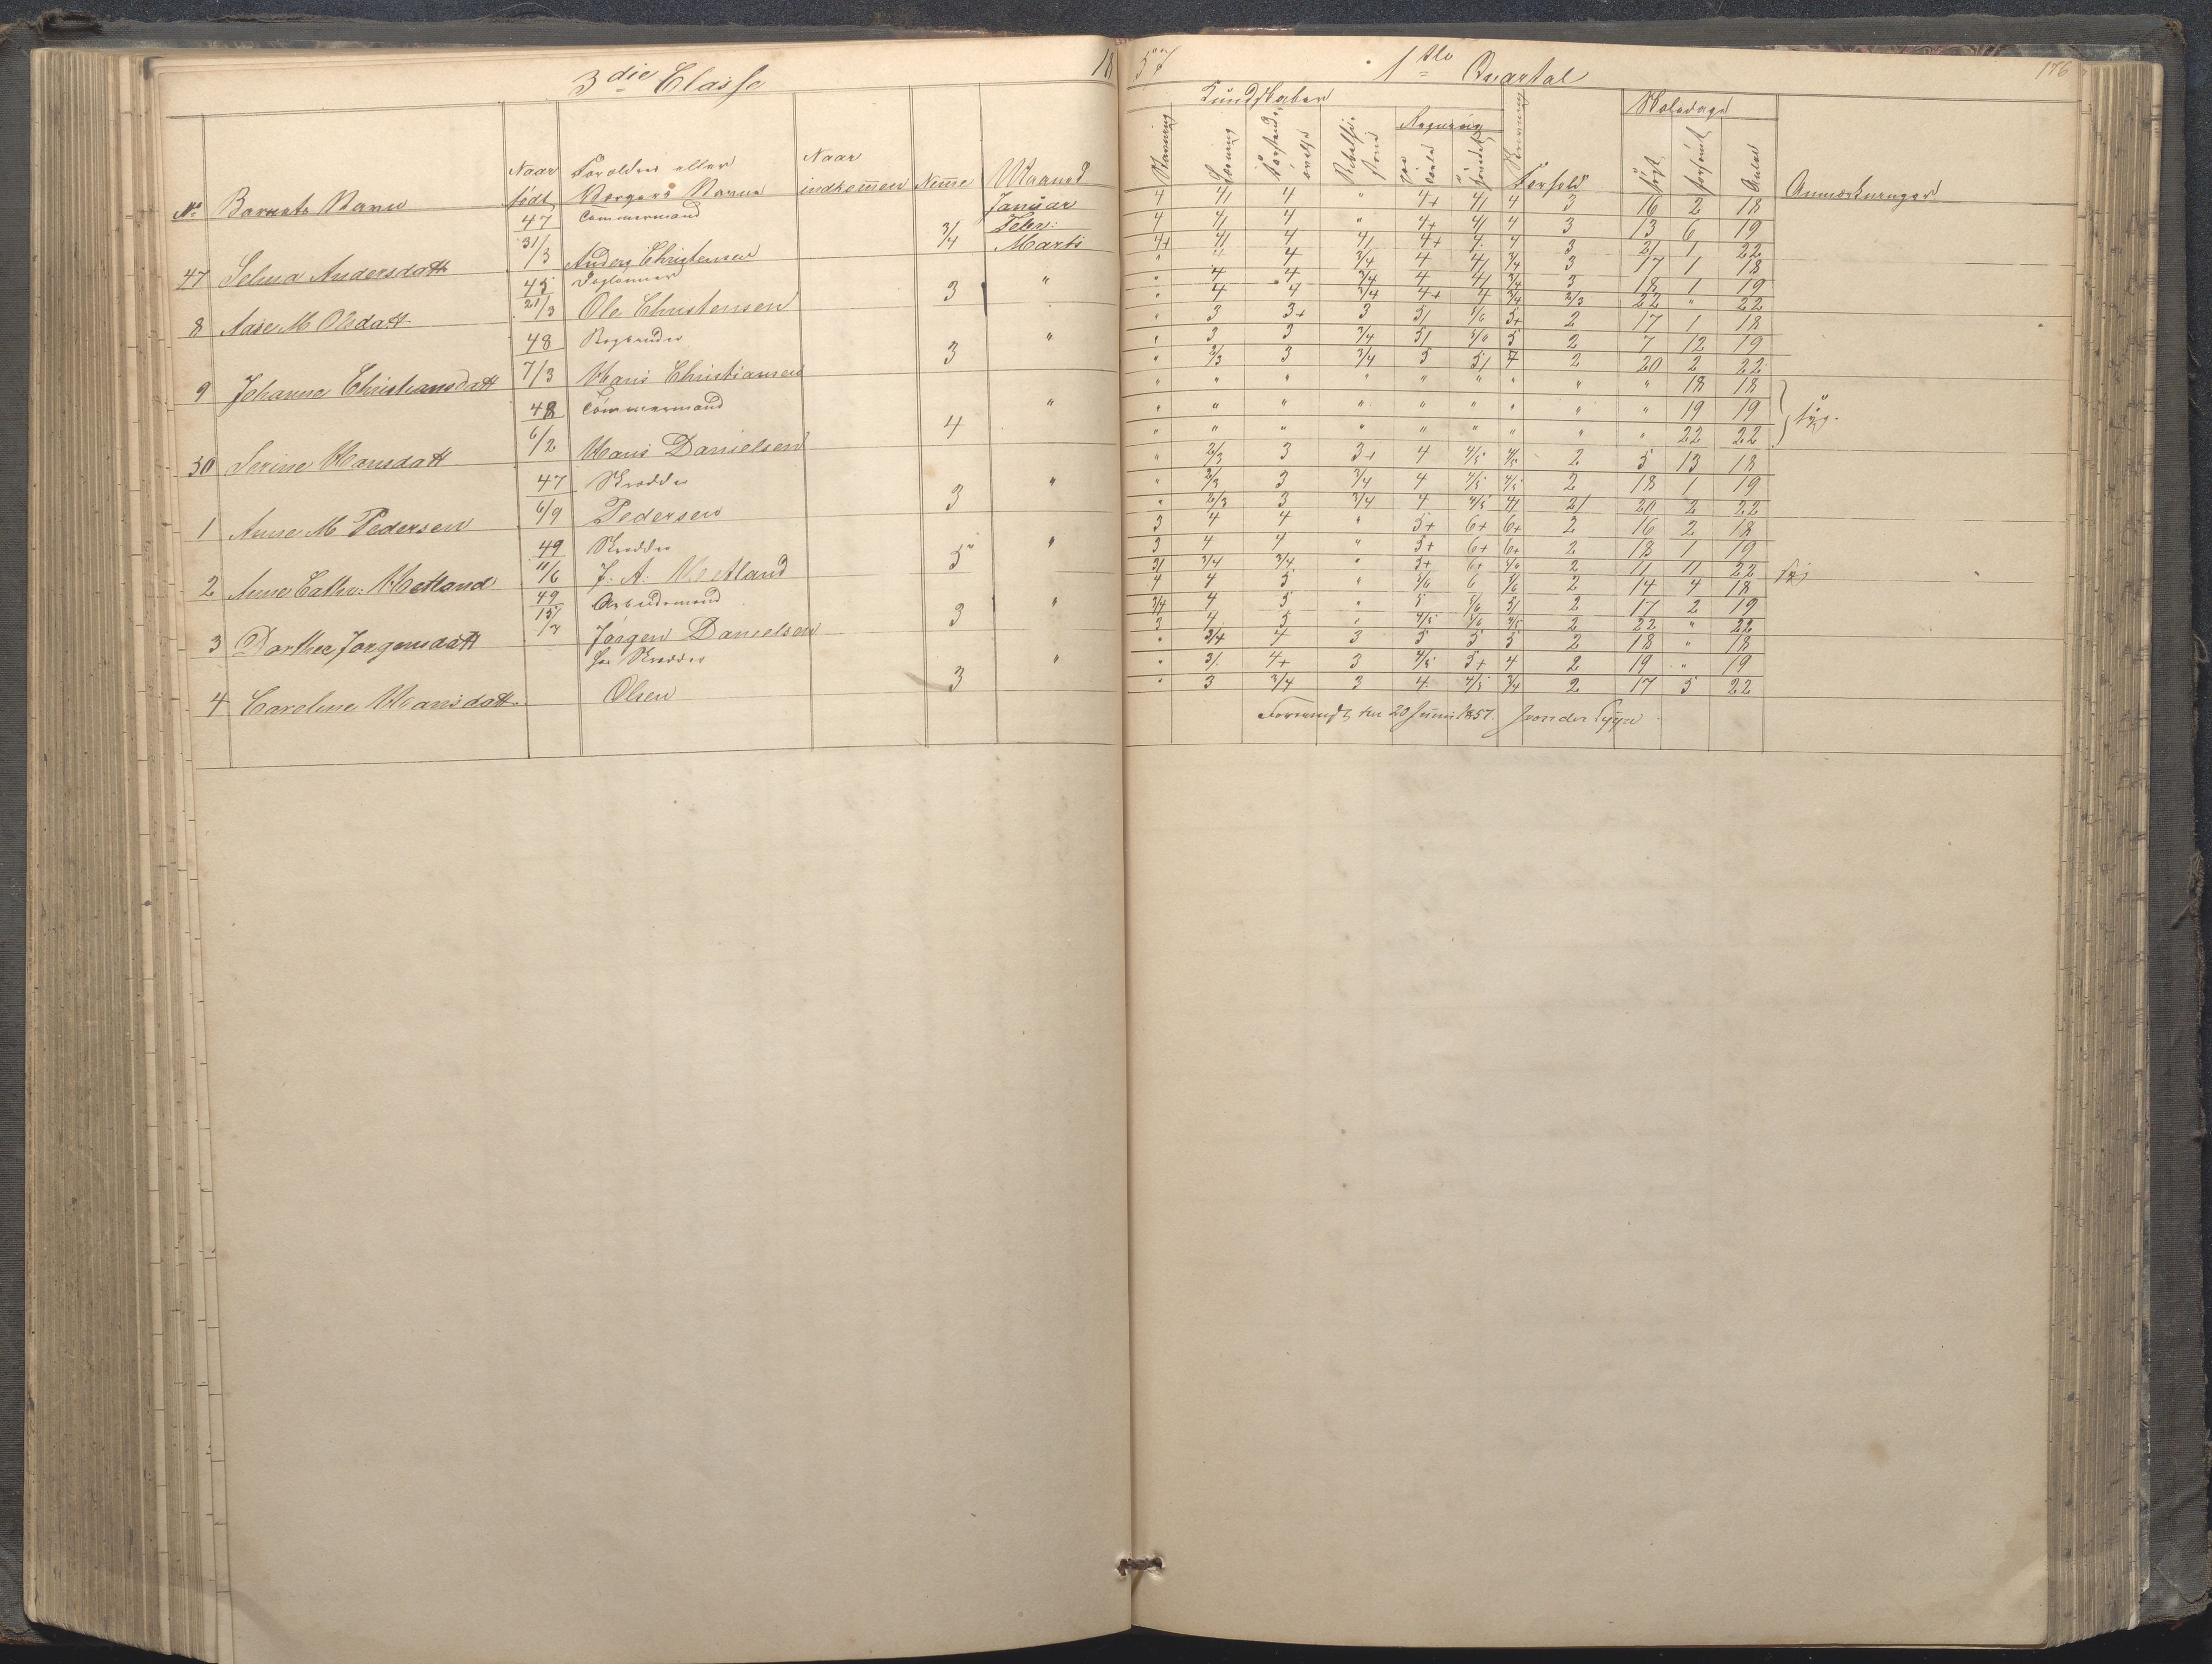 3die Classe 18
No Barnets Navn Naar født Forældres eller Værgers Navne Naar indkommen Nemme Maaned
47 Selma Andersdatt 47 31/3 Tømmermand Anders Christensen 3/4 Januar
Febr:
Marts
8 Aase M Olsdatt 45 21/3 Daglønner Ole Christensen 3 "
9 Johanne Christiansdatt 48 7/3 Hans Christiansen 3 "
50 Serine Hansdatt 48 6/2 Tømmermand Hans Danielsen 4 "
1 Anne M Pedersen 47 6/9 Skrædder Pedersen 3 "
2 Anne Cathr: Hetland 49 11/6 Skrædder J: A: Hetland 3 "
3 Dorthea Jørgensdatt 49 Arbeidsmand Jørgen Danielsen 3 "
4 Caroline Hansdatt Skrædder Olsen 3 "
57 1ste Quartal 176
Kundskaber Skoledage
Regning
Læsning Skrivning Forhold søgt forsømt Antal Anmærkninger
4 4/ 4 " 4+ 4/ 4 3 16 2 18
4 4/ 4 " 4+ 4/ 4 3 13 6 19
4+ 4/ 4 4/ 4+ 4 4 3 21 1 22
" " 4 3/4 4 4/ 3/4 3 17 1 18
" 4 4 3/4 4 4/ 3/4 3 18 1 19
" 4 4 3/4 4+ 4 3/4 2/3 22 " 22
" 3 3+ 3 5/ 5/6 5+ 2 17 1 18
" 3 3 3/4 5/ 5/6 5 2 7 12 19
" 2/3 3 3/4 5 5/ 4 2 20 2 22
" " " " " " " " " 18 18
" " " " " " " " " 19 19 syg.
" " " " " " " " " 22 22
" 2/3 3 3+ 4 4/5 4/5 2 5 13 18
" 2/3 3 3/4 4 4/5 4/5 2 18 1 19
" 2/3 3 3/4 4 4/5 4/ 2/ 20 2 22
3 4 4 " 5+ 6+ 6+ 2 16 2 18
3 4 4 " 5+ 6+ 6+ 2 18 1 19
3/ 3/4 3/4 " 5+ 6+ 5/6 2 11 11 22 syg
4 4 5 " 5/6 6 5/6 2 14 4 18
3/4 4 5 " 5 5/6 5/ 2 17 2 19
3 4 5 " 4/5 5/6 4/5 2 22 " 22
" 3/4 4 3 5 5 5 2 18 " 18
" 3/ 4+ 3 4/5 5+ 4 2 19 " 19
" 3 3/4 3 4 4/5 3/4 2 17 5 22
den 20 Juni 1857.